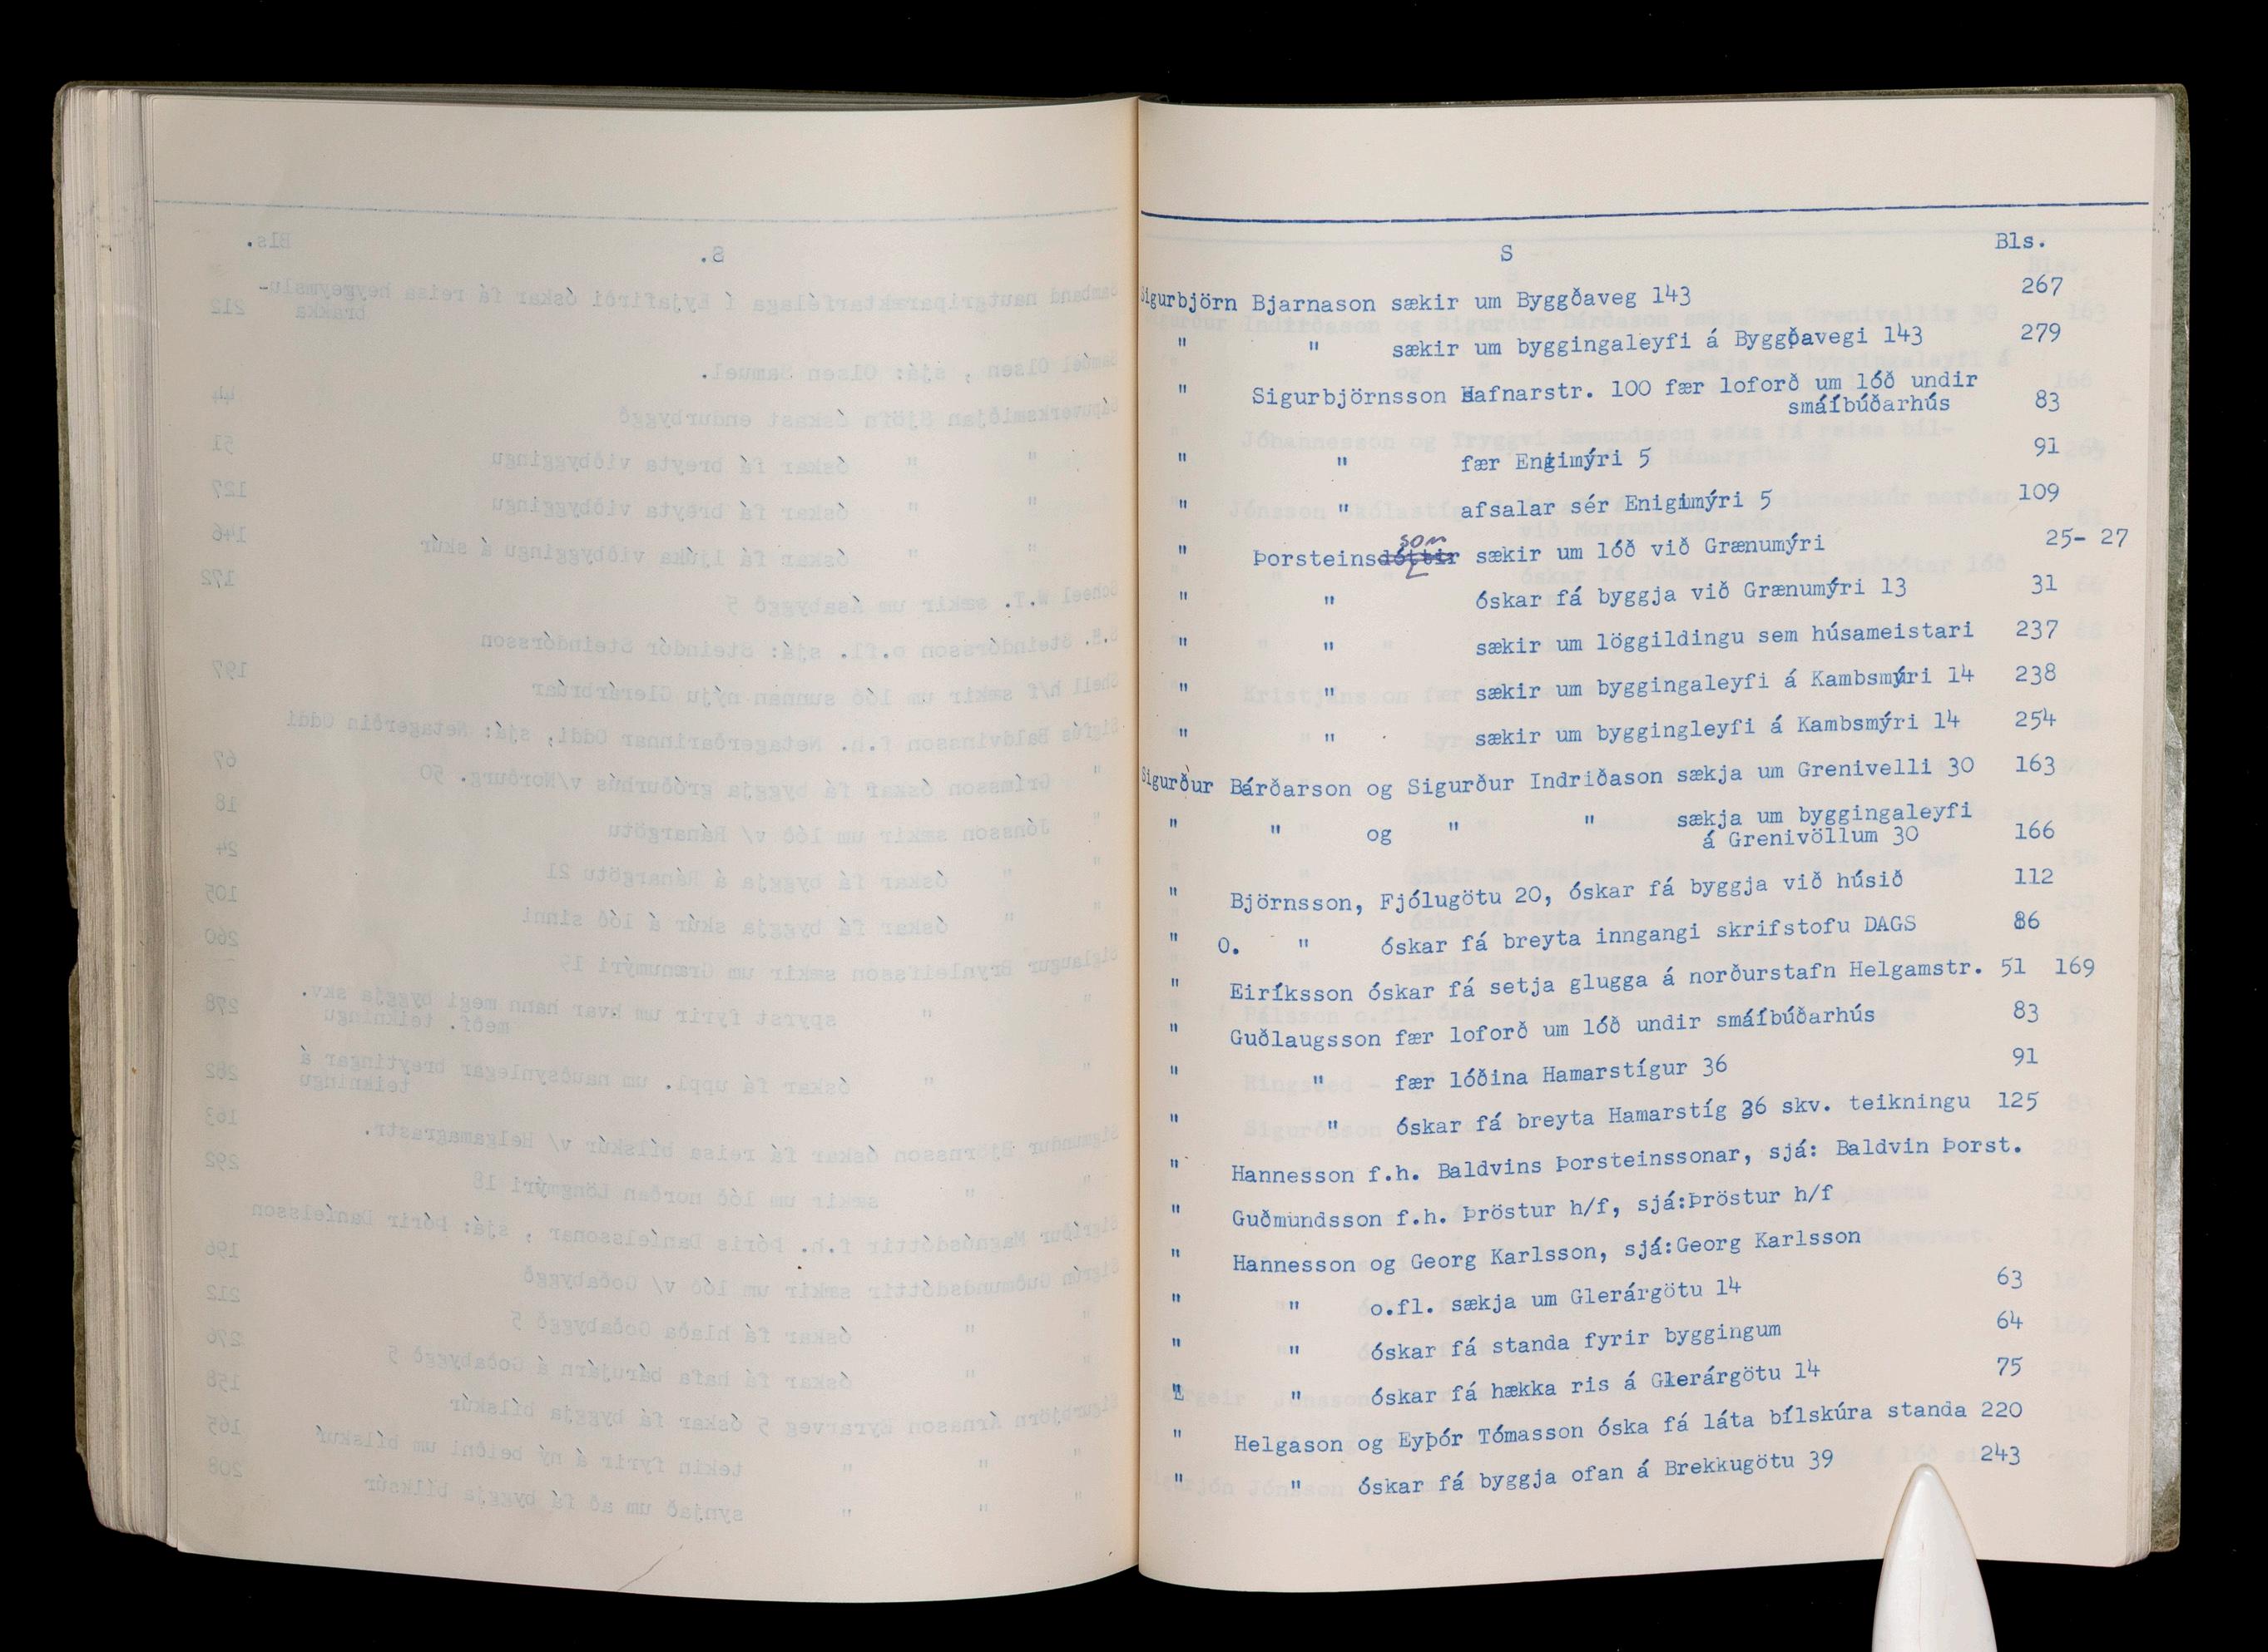 S Bls.
Sigurbjörn Bjarnason sækir um Byggðaveg 143 267
" " sækir um byggingaleyfi á Byggðavegi 143 279
" Sigurbjörnsson Hafnarstr. 100 fær loforð um lóð undir
smáíbúðarhús 83
" " fær Engimýri 5 91
" " afsalar sér Enigimýri 5 109
son
" Þorsteinsdóttir sækir um lóð við Grænumýri 25- 27
" " óskar fá byggja við Grænumýri 13 31
" " sækir um löggildingu sem húsameistari 237
" " sækir um byggingaleyfi á Kambsmýri 14 238
" " sækir um byggingleyfi á Kambsmýri 14 254
Sigurður Bárðarson og Sigurður Indriðason sækja um Grenivelli 30 163
" " og " " sækja um byggingaleyfi
á Grenivöllum 30 166
" Björnsson, Fjólugötu 20, óskar fá byggja við húsið 112
" O. " óskar fá breyta inngangi skrifstofu DAGS 86
" Eiríksson óskar fá setja glugga á norðurstafn Helgamstr. 51 169
" Guðlaugsson fær loforð um lóð undir smáíbúðarhús 83
" " fær lóðina Hamarstígur 36 91
" " óskar fá breyta Hamarstíg 36 skv. teikningu 125
" Hannesson f.h. Baldvins Þorsteinssonar, sjá: Baldvin Þorst.
" Guðmundsson f.h. Þröstur h/f, sjá:Þröstur h/f
" Hannesson og Georg Karlsson, sjá:Georg Karlsson
" " o.fl. sækja um Glerárgötu 14 63
" " óskar fá standa fyrir byggingum 64
" " óskar fá hækka ris á Glerárgötu 14 75
" Helgason og Eyþór Tómasson óska fá láta bílskúra standa 220
" " óskar fá byggja ofan á Brekkugötu 39 243